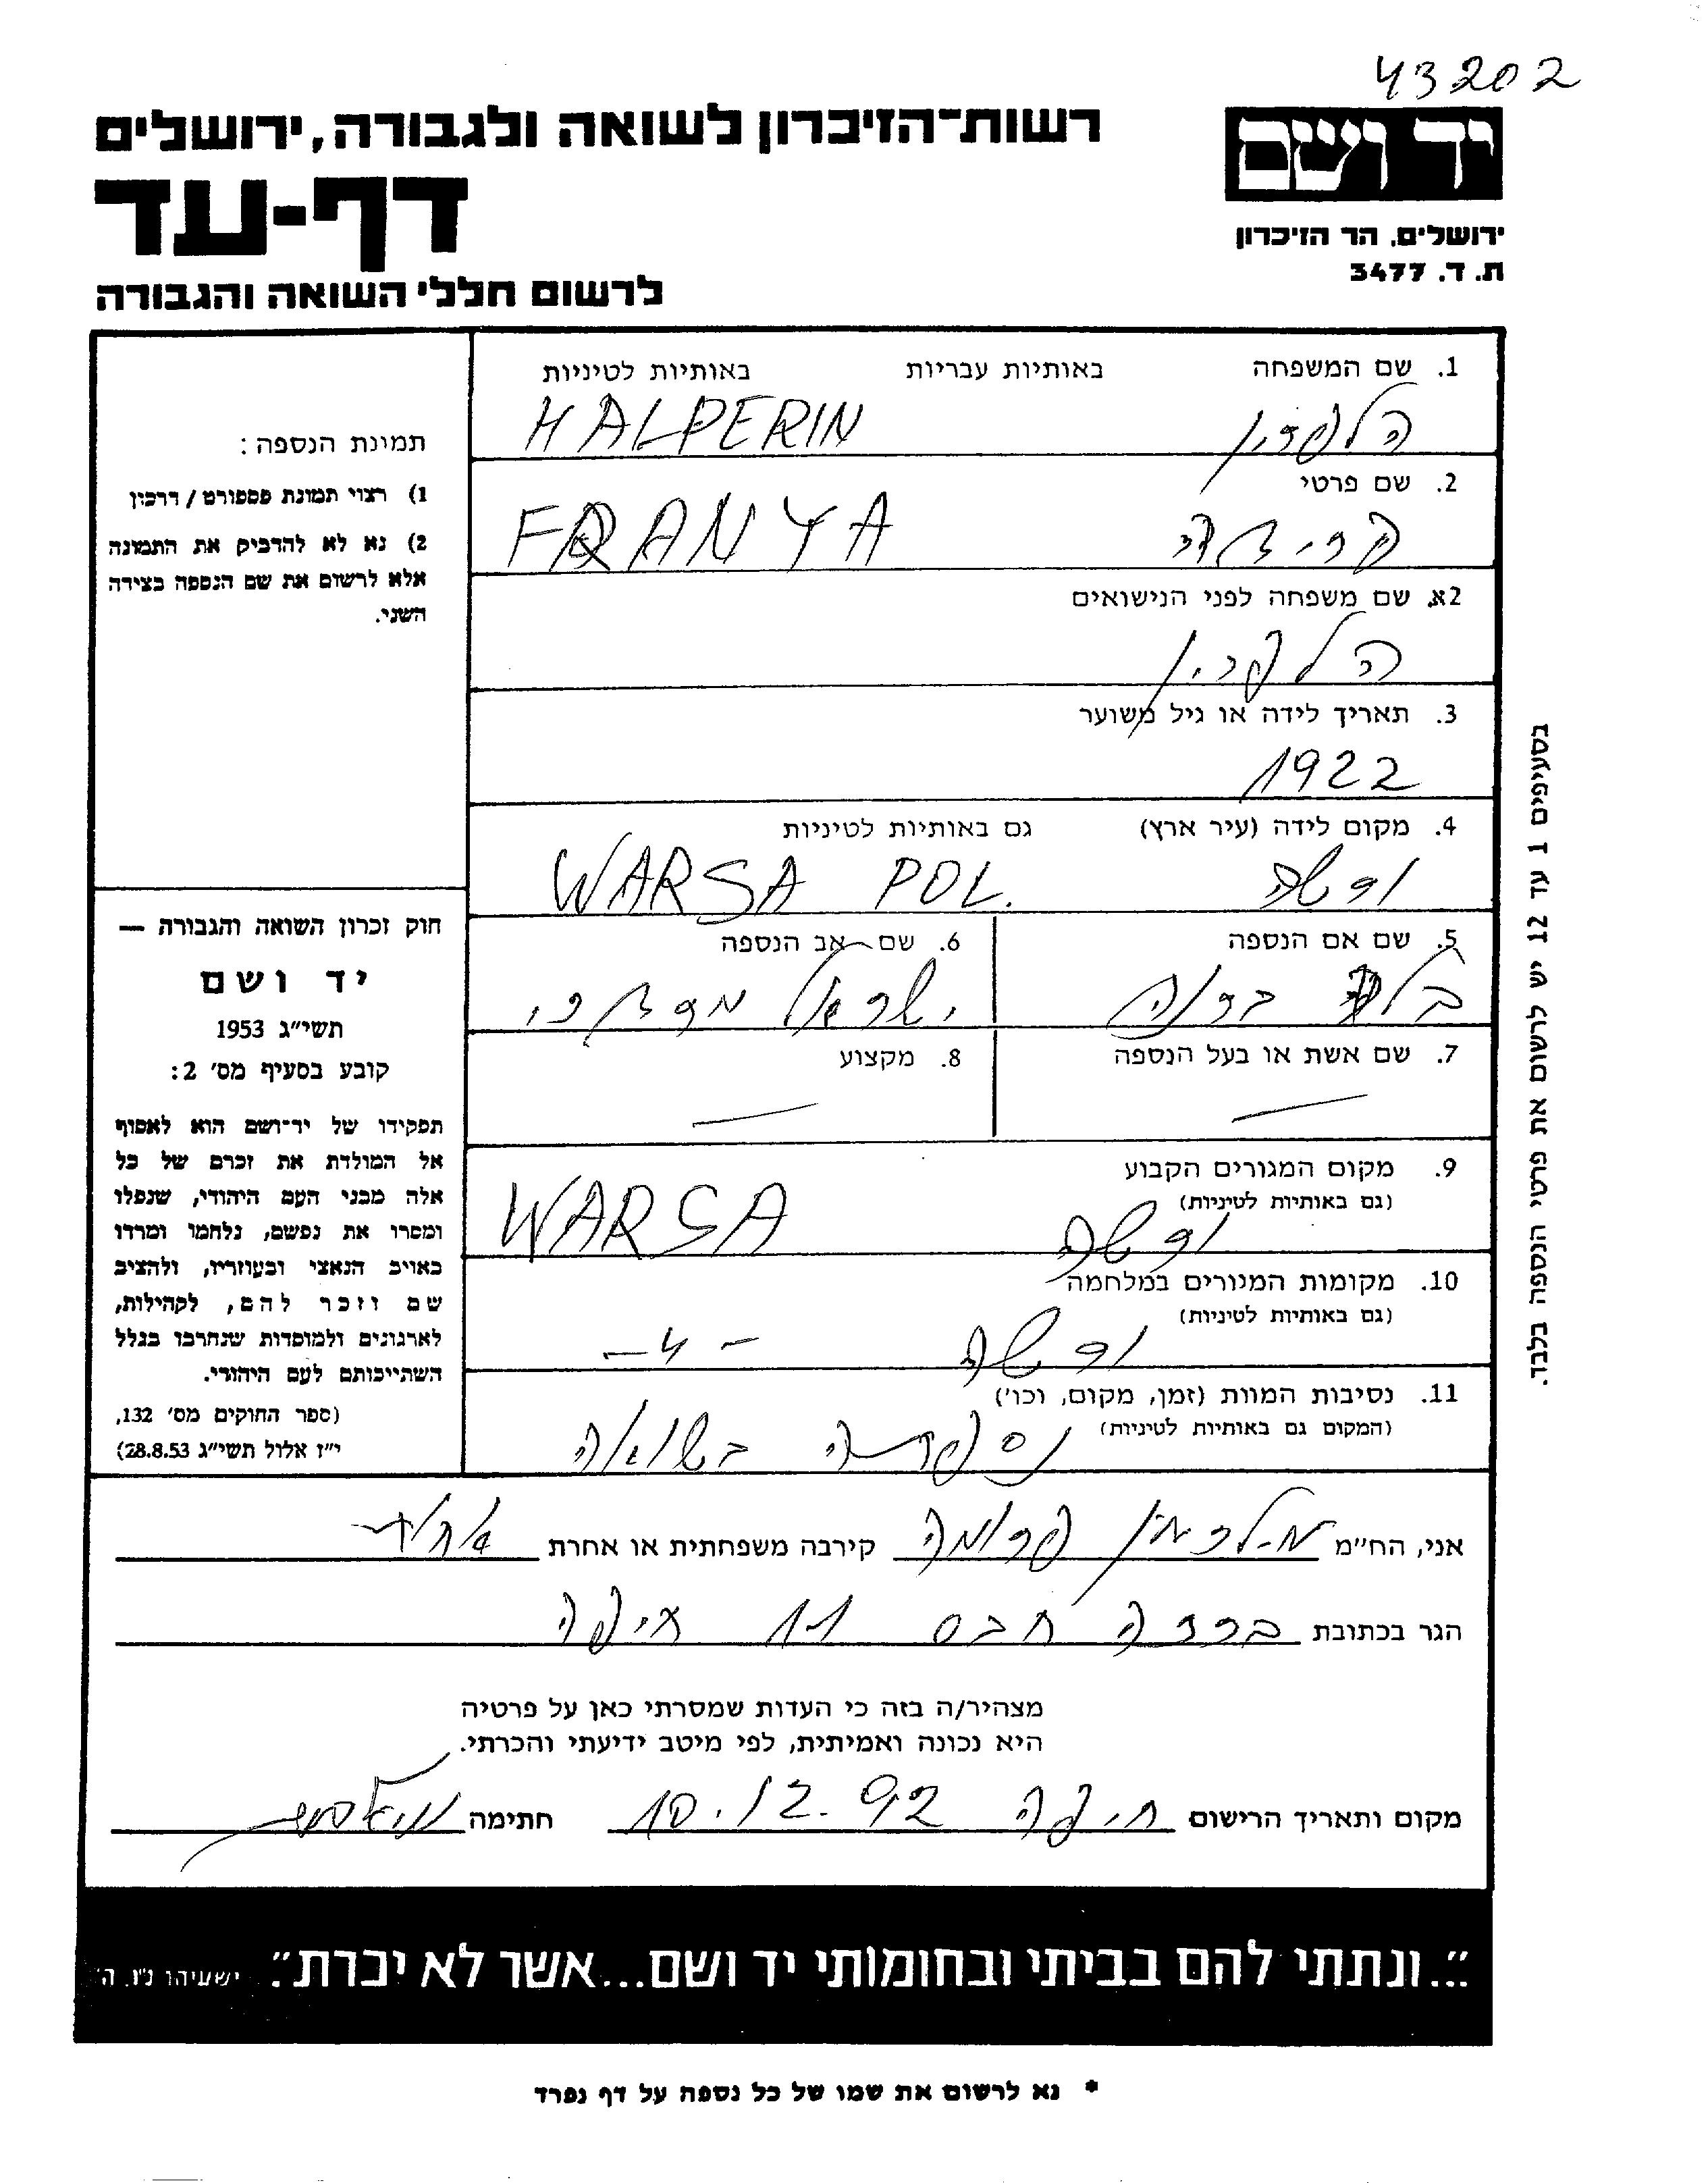 43202
רשות־הזיכרון לשואה ולגבורה, ירושלים
יד ושם
דף-עד
ירושלים, הר הזיכרון
ת. ד. 3477
לרשום חללי השואה והגבורה
1. שם המשפחה באותיות עבריות באותיות לטיניות
הלפרין HALPERIN
2. שם פרטי
FRANYA
2א. שם משפחה לפני הנישואים
הלפרין
3. תאריך לידה או גיל משוער
1922
4. מקום לידה (עיר ארץ) גם באותיות לטיניות
ורשה WARSA POL.
5. שם אם הנספה 6. שם אב הנספה
ישראל מרדכי
7. שם אשת או בעל הנספה 8. מקצוע
— —
9. מקום המגורים הקבוע
(גם באותיות לטיניות)
ורשה WARSA
10. מקומות המגורים במלחמה
(גם באותיות לטיניות)
ורשה –4–
11. נסיבות המוות (זמן, מקום, וכו')
(המקום גם באותיות לטיניות)
נספתה בשואה
תמונת הנספה:
1) רצוי תמונת פספורט / דרכון
2) נא לא להדביק את התמונה
אלא לרשום את שם הנספה בצידה
השני.
חוק זכרון השואה והגבורה —
יד ושם
תשי"ג 1953
קובע בסעיף מס' 2:
תפקידו של יד־ושם הוא לאסוף
אל המולדת את זכרם של כל
אלה מבני העם היהודי, שנפלו
ומסרו את נפשם, נלחמו ומרדו
באויב הנאצי ובעוזריו, ולהציב
שם וזכר להם, לקהילות,
לארגונים ולמוסדות שנחרבו בגלל
השתייכותם לעם היהודי.
(ספר החוקים מס' 132,
י"ז אלול תשי"ג 28.8.53)
בסעיפים 1 עד 12 יש לרשום את פרטי הנספה בלבד.
אני, הח"מ פרומה קירבה משפחתית או אחרת אחות
הגר בכתובת ברכה חבס 11 חיפה
מצהיר/ה בזה כי העדות שמסרתי כאן על פרטיה
היא נכונה ואמיתית, לפי מיטב ידיעתי והכרתי.
מקום ותאריך הרישום חיפה 10.12.92 חתימה
"...ונתתי להם בביתי ובחומותי יד ושם...אשר לא יכרת". ישעיהו נ"ו, ה'
* נא לרשום את שמו של כל נספה על דף נפרד